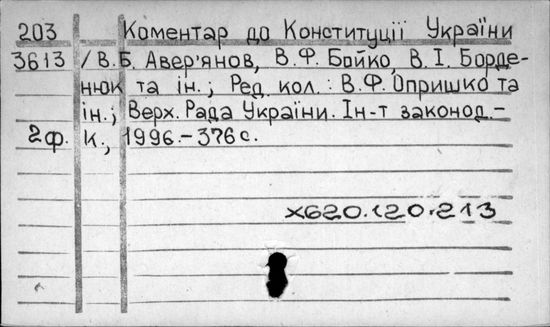 203 Коментар до Конституції України
3613 /В.Б. Авер'янов, В.Ф. Бойко, В.І. Борде-
нюк та ін.; Ред. кол.: В.Ф. Опришко та
ін.; Верх. Рада України. Ін-т законод.-
2ф. К., 1996.-376с.
х620.120.213